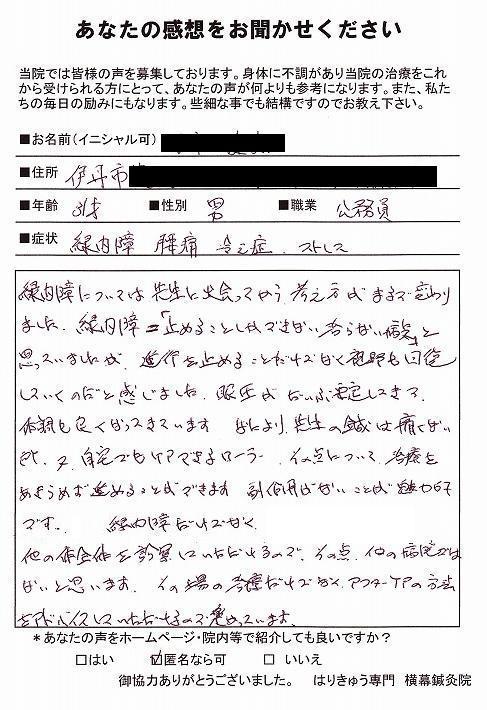 あなたの感想をお聞かせください
当院では皆様の声を募集しております。身体に不調があり当院の治療をこれ
から受けられる方にとって、あなたの声が何よりも参考になります。また、私た
ちの毎日の励みにもなります。些細な事でも結構ですのでお教え下さい。
■お名前(イニシャル可)
■住所 伊丹市
■年齢 31才 ■性別 男 ■職業 公務員
■症状 緑内障 腰痛 冷え症 ストレス
緑内障については先生に出会ってから考え方がまるで変わり
ました。緑内障=「止めることしかできない治らない病気」と
思っていましたが、進行を止めることだけでなく視野も回復
していくのだと感じました。眼圧がだいぶ安定してきて
体調も良くなってきています なにより、先生の鍼は痛くない
所、又、自宅でもケアできるローラー、その点について、治療を
あきらめず進めることができます 副作用がないことが魅力的
です。 緑内障だけでなく
他の体全体を診察していただけるので、その点、他の病院では
ないと思います。その場の治療だけでなく、アフターケアの方法
をアドバイスしていただけるので
*あなたの声をホームページ・院内等で紹介しても良いですか?
□はい ☑匿名なら可 □いいえ
御協力ありがとうございました。 はりきゅう専門 横幕鍼灸院